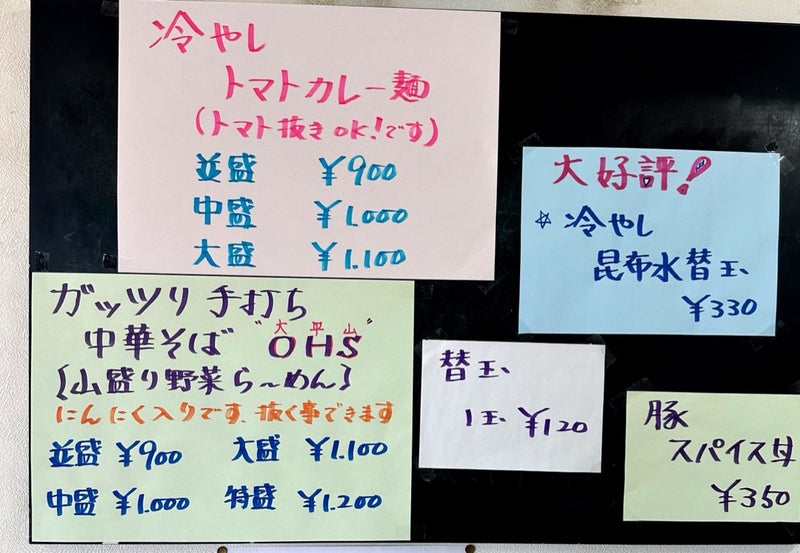 冷やし
トマトカレー麺
(トマト抜きOK!です)
並盛 ¥900
中盛 ¥1.000
大盛 ¥1.100
大好評!
☆冷やし
昆布水替玉
¥330
ガッツリ手打ち
大平山
中華そば"OHS"
[山盛り野菜ら~めん]
にんにく入りです、抜く事できます
並盛 ¥900 大盛 ¥1.100
中盛 ¥1.000 特盛 ¥1.200
替玉
1玉 ¥120
豚
スパイス丼
¥350